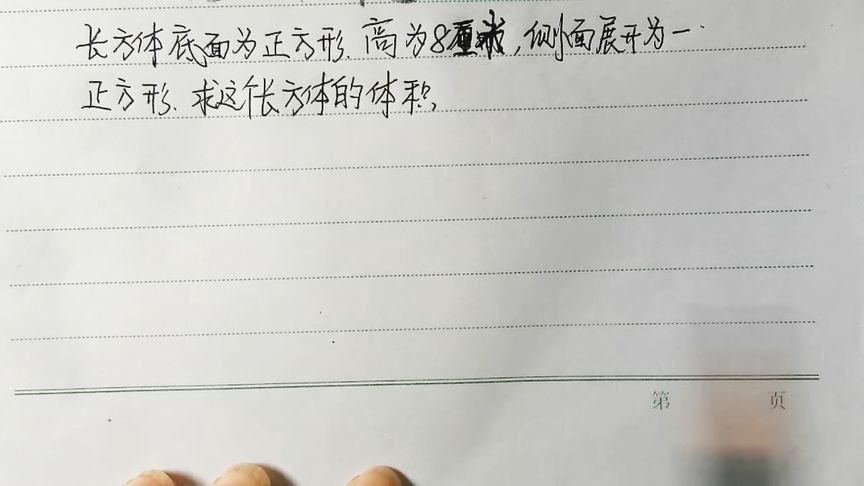 长方体底面为正方形、高为8厘米,侧面展开为一
正方形、求这个长方体的体积,
第 页